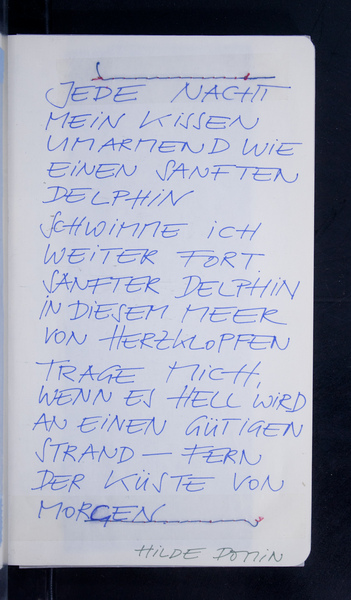 JEDE NACHT
MEIN KISSEN
UMARMEND WIE
EINEN SANFTEN
DELPHIN
SCHWIMME ICH
WEITER FORT
SANFTER DELPHIN
IN DIESEM MEER
VON HERZKLOPFEN
TRAGE MICH,
WENN ES HELL WIRD
AN EINEN GÜTIGEN
STRAND — FERN
DER KÜSTE VON
MORGEN
HILDE DOMIN